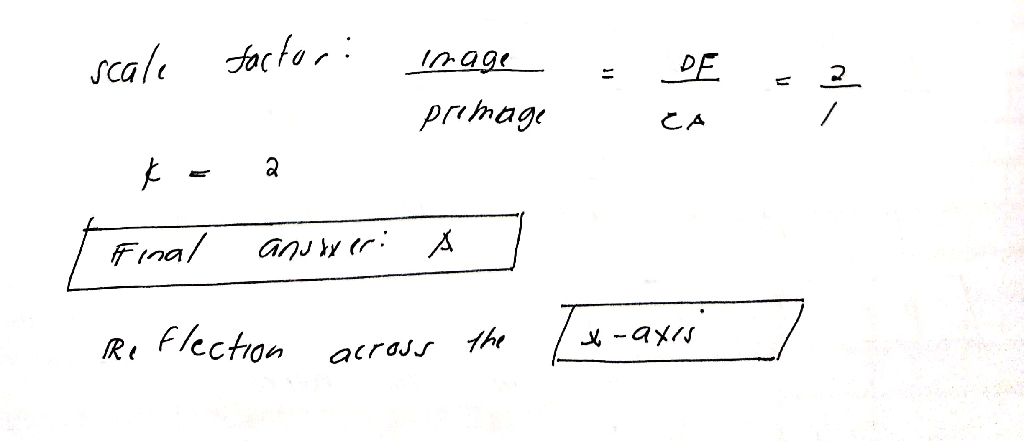 scale factor: image / preimage = DF / CA = 2 / 1
k = 2
Final answer: A
Reflection across the x-axis